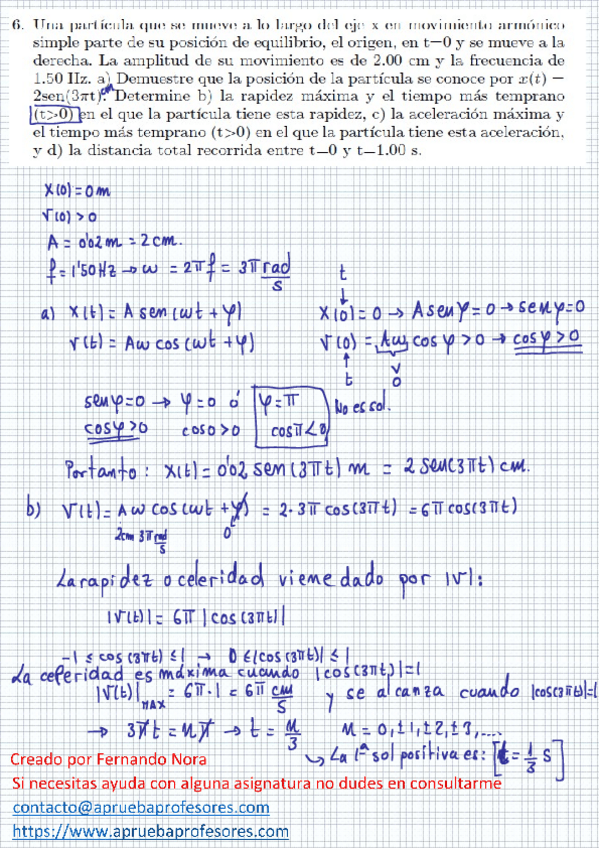 6. Una partícula que se mueve a lo largo del eje x en movimiento armónico
simple parte de su posición de equilibrio, el origen, en t=0 y se mueve a la
derecha. La amplitud de su movimiento es de 2.00 cm y la frecuencia de
1.50 Hz. a) Demuestre que la posición de la partícula se conoce por x(t) =
2sen(3πt) cm. Determine b) la rapidez máxima y el tiempo más temprano
(t>0) en el que la partícula tiene esta rapidez, c) la aceleración máxima y
el tiempo más temprano (t>0) en el que la partícula tiene esta aceleración,
y d) la distancia total recorrida entre t=0 y t=1.00 s.
X(0)=0m
V(0)>0
A = 0'02m = 2cm.
f=1'50Hz → ω = 2πf = 3π rad/s
t
a) X(t) = A sen(ωt + φ) X(0)=0 → A senφ=0 → senφ=0
V(t) = Aω cos(ωt + φ) V(0) = Aω cosφ>0 → cosφ>0
t v 0
senφ=0 → φ=0 ó φ=π No es sol.
cosφ>0 cos0>0 cosπ<0
Por tanto: X(t) = 0'02 sen(3πt) m = 2 sen(3πt) cm.
b) V(t) = Aω cos(ωt + φ) = 2·3π cos(3πt) = 6π cos(3πt)
2cm 3π rad/s 0
La rapidez o celeridad viene dado por |V|:
|V(t)| = 6π |cos(3πt)|
-1 ≤ cos(3πt) ≤ 1 → 0 ≤ |cos(3πt)| ≤ 1
La celeridad es máxima cuando |cos(3πt)|=1
|V(t)|MAX = 6π·1 = 6π cm/s y se alcanza cuando |cos(3πt)|=1
→ 3πt = nπ → t = n/3 n = 0, ±1, ±2, ±3, ...
↳ La 1ª sol positiva es: [t = 1/3 s]
Creado por Fernando Nora
Si necesitas ayuda con alguna asignatura no dudes en consultarme
contacto@apruebaprofesores.com
https://www.apruebaprofesores.com